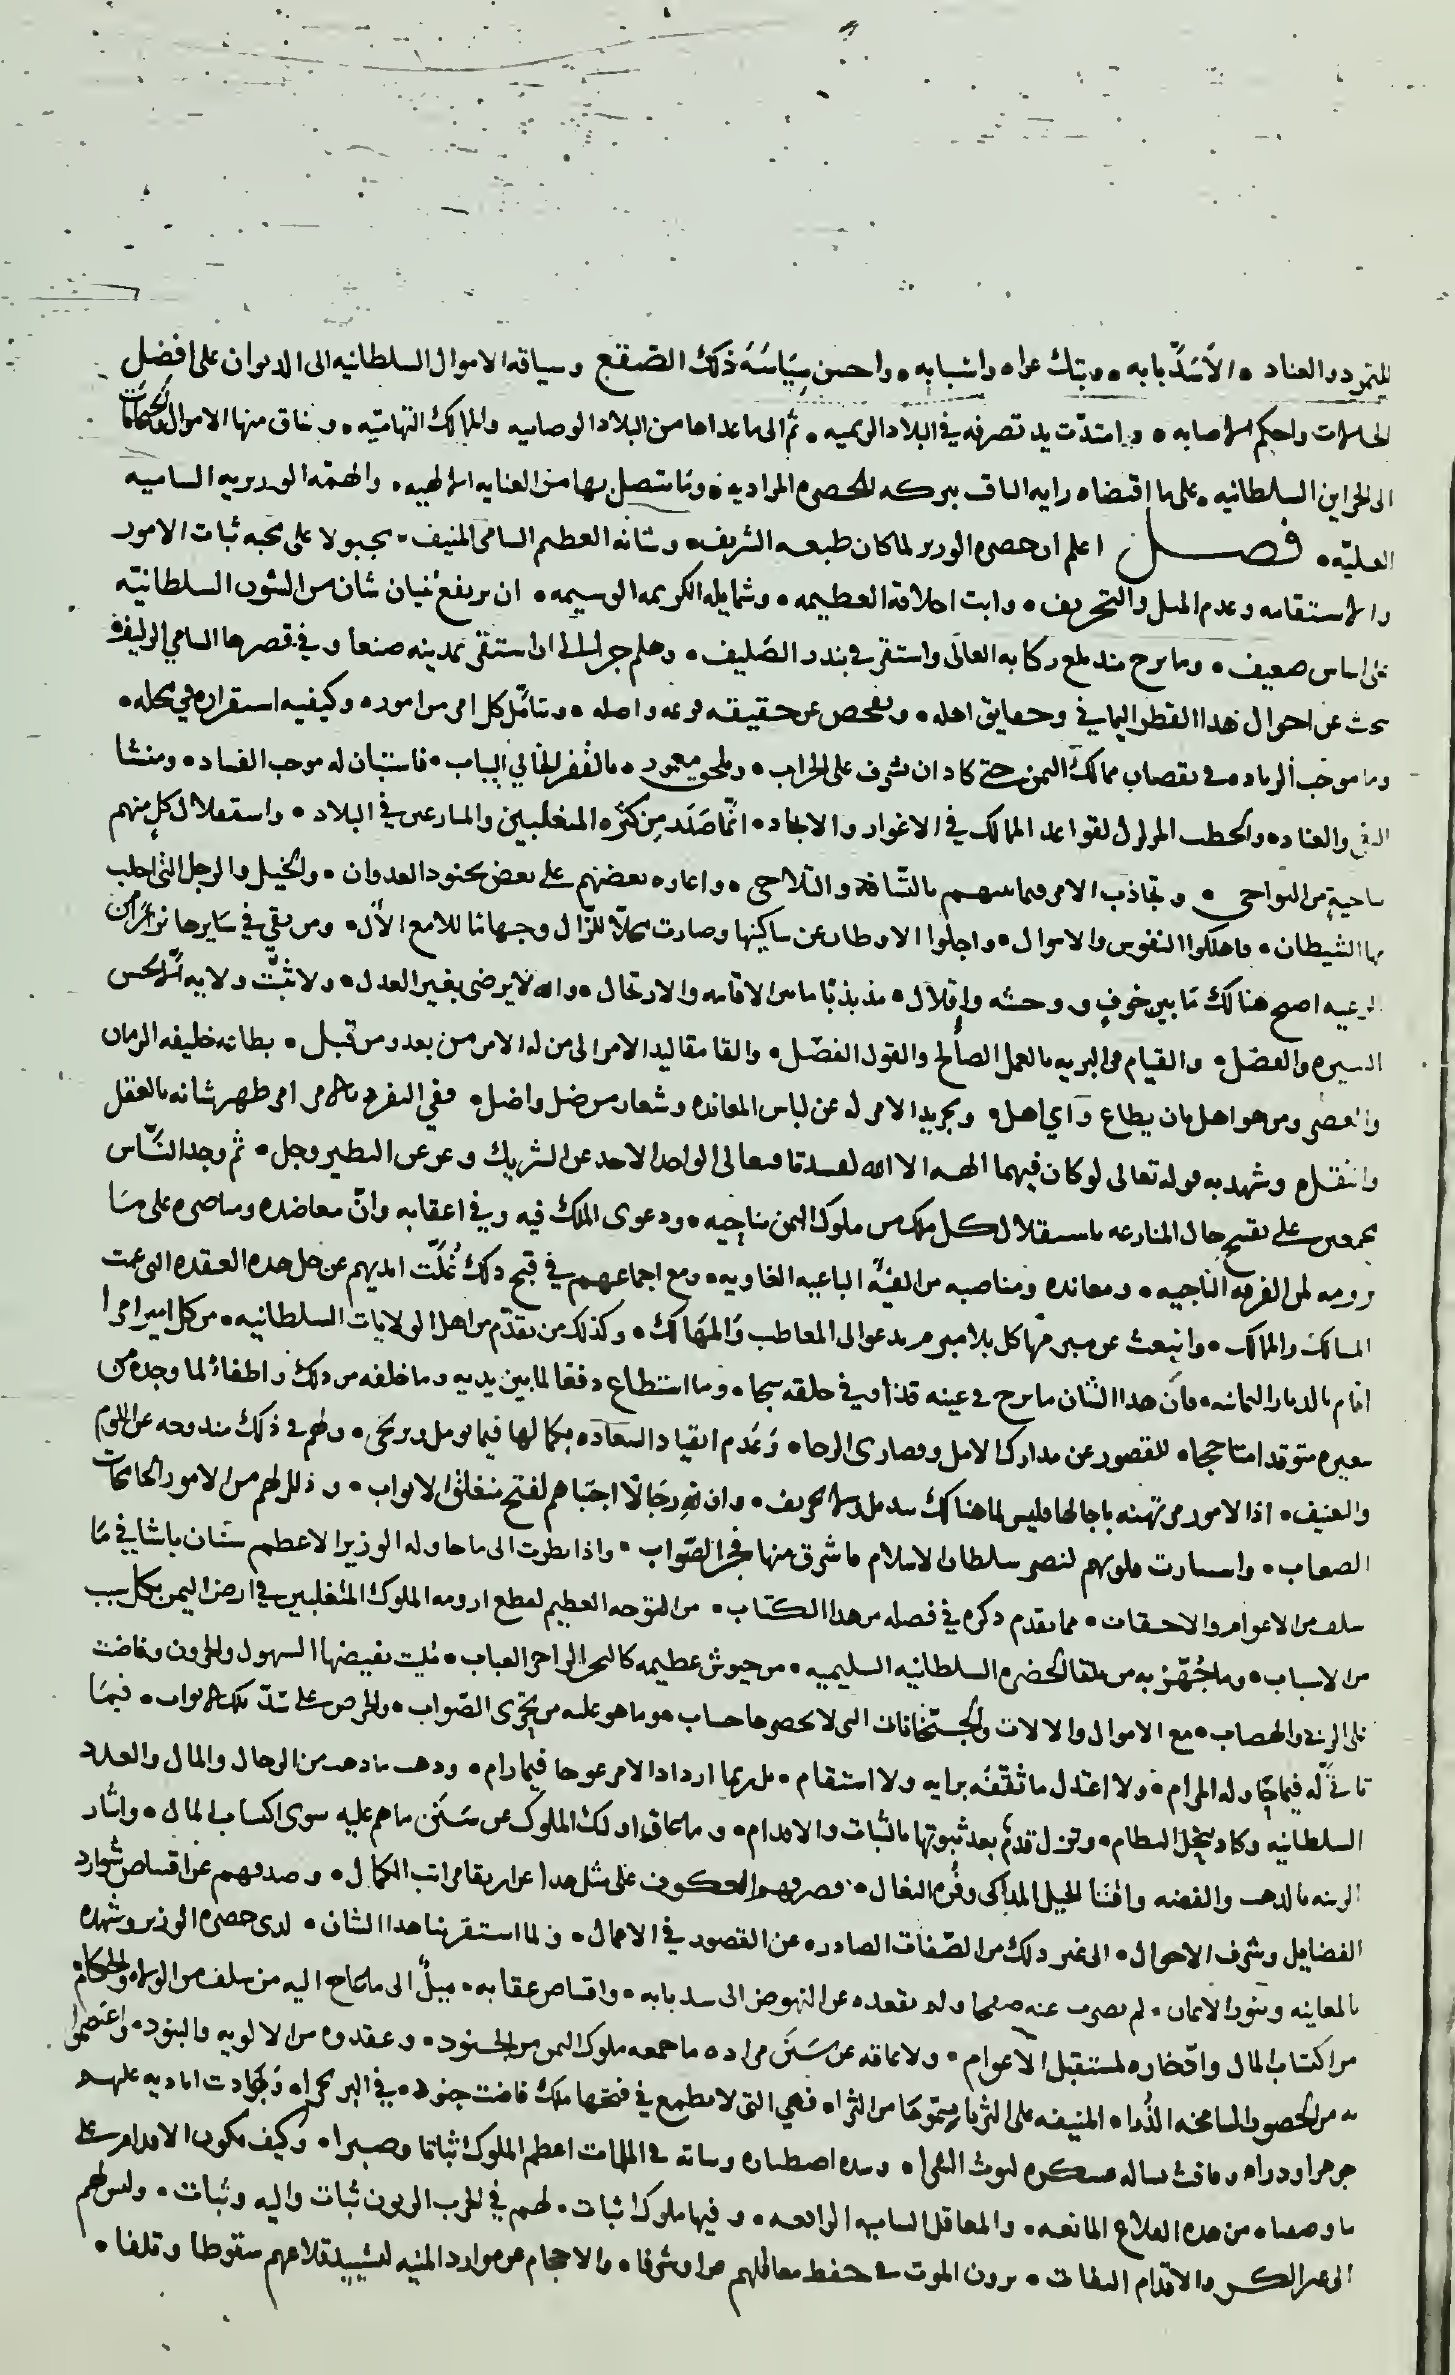 للتمرد والعناد ٠ الا سَدَّ بابه ٠ وبتك عراه واسبابه ٠ واحسن سِيَاسَةَ ذلك الصّقع وسياقه الاموال السلطانيه الى الديوان على افضل
الحالات واحكم الاصابه ٠ وامتدّت يد تصرفه في البلاد الريميه ٠ ثمّ الى ما عداها من البلاد الوصابيه والممالك التهاميّه ٠ وساق منها الاموال
الى الخزاين السلطانيه ٠ على ما اقتضاه رايه الثاقب ببركه الحضره المراديه ٠ وما يتصل بها من العنايه الالهيه ٠ والهمّه الوزيريه الساميه
العليّه ٠ فصل اعلم ان حضره الوزير لما كان طبعه الشريف ٠ وشانه العظيم السامي المنيف ٠ مجبولا على محبه ثبات الامور
والاستقامه وعدم الميل والتحريف ٠ وابت اخلاقه العظيمه ٠ وشمايله الكريمه الوسيمه ٠ ان يرفع بُنيان شان من الشون السلطانيّه
على اساس ضعيف ٠ وما برح منذ طلع ركابه العالى واستقر في بندر الصّليف ٠ وهلم جرا الى ان استقر بمدينه صنعا وفي قصرها السامي
يبحث عن احوال هذا القطر اليماني وحقايق اهله ٠ ويفحص عن حقيقه فرعه واصله ٠ ويتامّل كل امر من اموره ٠ وكيفيه استقراره في محله ٠
وما موجب الزياده في نقصان ممالك اليمن حتى كاد ان يشرف على الخراب ٠ ويلحق معموره بالقفر الخالي اليباب ٠ فاستبان له موجب الفساد ٠ ومنشا
البغي والعناد ٠ والخطب المزلزل لقواعد الممالك في الاغوار والانجاد ٠ انّما صَدَر مِن كثره المتغلبين والمنازعين في البلاد ٠ واستقلال كلٍ منهم
بناحيةٍ من النواحي ٠ وتجاذب الامر فيما بينهم بالتّشاقق والتّلاحي ٠ واغاره بعضهم على بعض بجنود العدوان ٠ والخيل والرجل التي اجلب
بها الشيطان ٠ فاهلكوا النفوس والاموال ٠ واجلوا الاوطان عن ساكنيها وصارت محلّا للزّال وجهاتها للامع الآل ٠ ومن بقي في سايرها
الرعيه اصبح هنالك مَا بين خوفٍ ووحشه وإقلال ٠ مذبذبًا ما بين الاقامه والارتحال ٠ والله لا يرضى بغير العدل ٠ ولا تثبّت ولايه الّا بحسن
السيره والفضل ٠ والقيام في البريه بالعمل الصالح والقول الفصّل ٠ والقا مقاليد الامر الى من له الامر من بعد ومن قبل ٠ بطاعه خليفه الزمان
ومن هو اهل بان يطاع وايّ اهل ٠ وتجريد الامر له عن لباس المعانده وشعار من ضل واضل ٠ ففي التفرد بالامر امر ظهر شانه بالعقل
والنقل ٠ وشهد به قوله تعالى لو كان فيهما الهه الا الله لفسدتا فتعالى الواحد الاحد عن الشريك وعز عن النظير وجل ٠ ثم وجد النّاس
مجمعين على تقبيح حال المنازعه باستقلال كل ملك من ملوك اليمن بناحيه ٠ ودعوى الملك فيه وفي اعقابه وانّ معاضده ومناصره على مَا
يرومه لمن الفرقه النّاجيه ٠ ومعانده ومناصبه من الفيئه الباغيه الغاويه ٠ ومع اجماعهم في قبح ذلك غُلّت ايديهم عن حل هذه العقده التي عمت
المسالك والممالك ٠ وانبعث عن مبرمها كل بلاء مبرم يدعو الى المعاطب والمهالك ٠ وكذلك من تقدّم من اهل الولايات السلطانيه ٠ من كل امير امرا
اقام بالديار اليمانيه ٠ فانّ هذا الشان ما برح في عينه قذا وفي حلقه شجا ٠ وما استطاع دفعا لما بين يديه وما خلفه من ذلك واطفاء لما وجده من
سعيره متوقدا متاججا ٠ للقصور عن مدارك الامل وقصارى الرجا ٠ وعدم انقياد السعاده بكمالها فيما يومل ويرتجى ٠ ولهم في ذلك مندوحه عن اللوم
والتعنيف ٠ اذ الامور مرتهنه باجالها وليس لما هناك تبديل ولا تحريف ٠ وان لله رجالًا اجتباهم لفتح منغلق الابواب ٠ وذلل لهم من الامور الجامحات
الصعاب ٠ واستنارت قلوبهم لنصر سلطان الاسلام فاشرق منها فجر الصّواب ٠ واذا نظرت الى ما حاوله الوزير الاعظم سنان باشا في ما
سلف من الاعوام والاحقاب ٠ مما تقدم ذكره في فصله من هذا الكتاب ٠ من التوجه العظيم لقطع ارومه الملوك المتغلبين في ارض اليمن بكل سبب
من الاسباب ٠ وما جُهّز به من تلقا الحضره السلطانيه السليميه ٠ من جيوش عظيمه كالبحر الزاخر العباب ٠ مُليت بفيضها السهول والحزون وفاضت
على الربى والهضاب ٠ مع الاموال والالات والجبخانات التي لا يحصرها حساب هو ما هو عليه من تحرّى الصّواب ٠ والحرص على سدّ تلك الابواب ٠ فيما
تاتى له فيما حاوله المرام ٠ ولا اعتدل ما ثقّفه برايه ولا استقام ٠ بل ربما ازداد الامر عوجا فيما رام ٠ وذهب ما ذهب من الرجال والمال والعدد
السلطانيه وكاد ينحل النظام ٠ وتزل قدمٌ بعد ثبوتها بالثبات والاقدام ٠ وما عاق اولئك الملوك عن سَنَن ما هم عليه سوى اكتساب المال ٠ وايثار
الزينه بالذهب والفضه واقتنا الخيل المذاكى وفُره البغال ٠ فصرفهم العكوف على مثل هذا عن ارتقا مراتب الكمال ٠ وصدفهم عن اقتناص شوارد
الفضايل وشرف الاحوال ٠ الى غير ذلك من الصّفات الصادره عن القصور في الاعمال ٠ ولما استقر بنا هذا الشان ٠ لدى حضره الوزير وشهده
بالمعاينه وبنور الايمان ٠ لم يضرب عنه صفحا ولم يقعده عن النهوض الى سد بابه ٠ واقتناص عقابه ٠ ميلٌ الى ما جنح اليه من سلف من الولاه والحكام
من اكتساب المال وادّخاره لمستقبل الاعوام ٠ ولا عاقه عن سَنَن مراده ما جمعه ملوك اليمن من الجنود ٠ وعقدوه من الالويه والبنود ٠ واعتصموا
به من الحصون الشامخه الذُرا ٠ المنيفه على الثريا بسموّها من الثرا ٠ فهي التي لا يطمع في فتحها ملك فاضت جنوده في البر بحرا ٠ وجادت اياديه عليهم
جوهرا ودرا ٠ وفاقت بساله عسكره ليوث الشرا ٠ وشده اصطباره وثباته في الملمات اعظم الملوك ثباتا وصبرا ٠ وكيف يكون الاقدام على
ما وصفنا ٠ من هذه القلاع المانعه ٠ والمعاقل الساميه الرافعه ٠ وفيها ملوك اثبات ٠ لهم في الحرب الزبون ثبات واليه وثبات ٠ وليس لهم
الى غير الكر والاقدام التفات ٠ يرون الموت في حفظ معاقلهم عزا وشرفا ٠ والاحجام عن موارد المنيه لتشييد قلاعهم سقوطا وتلفا ٠